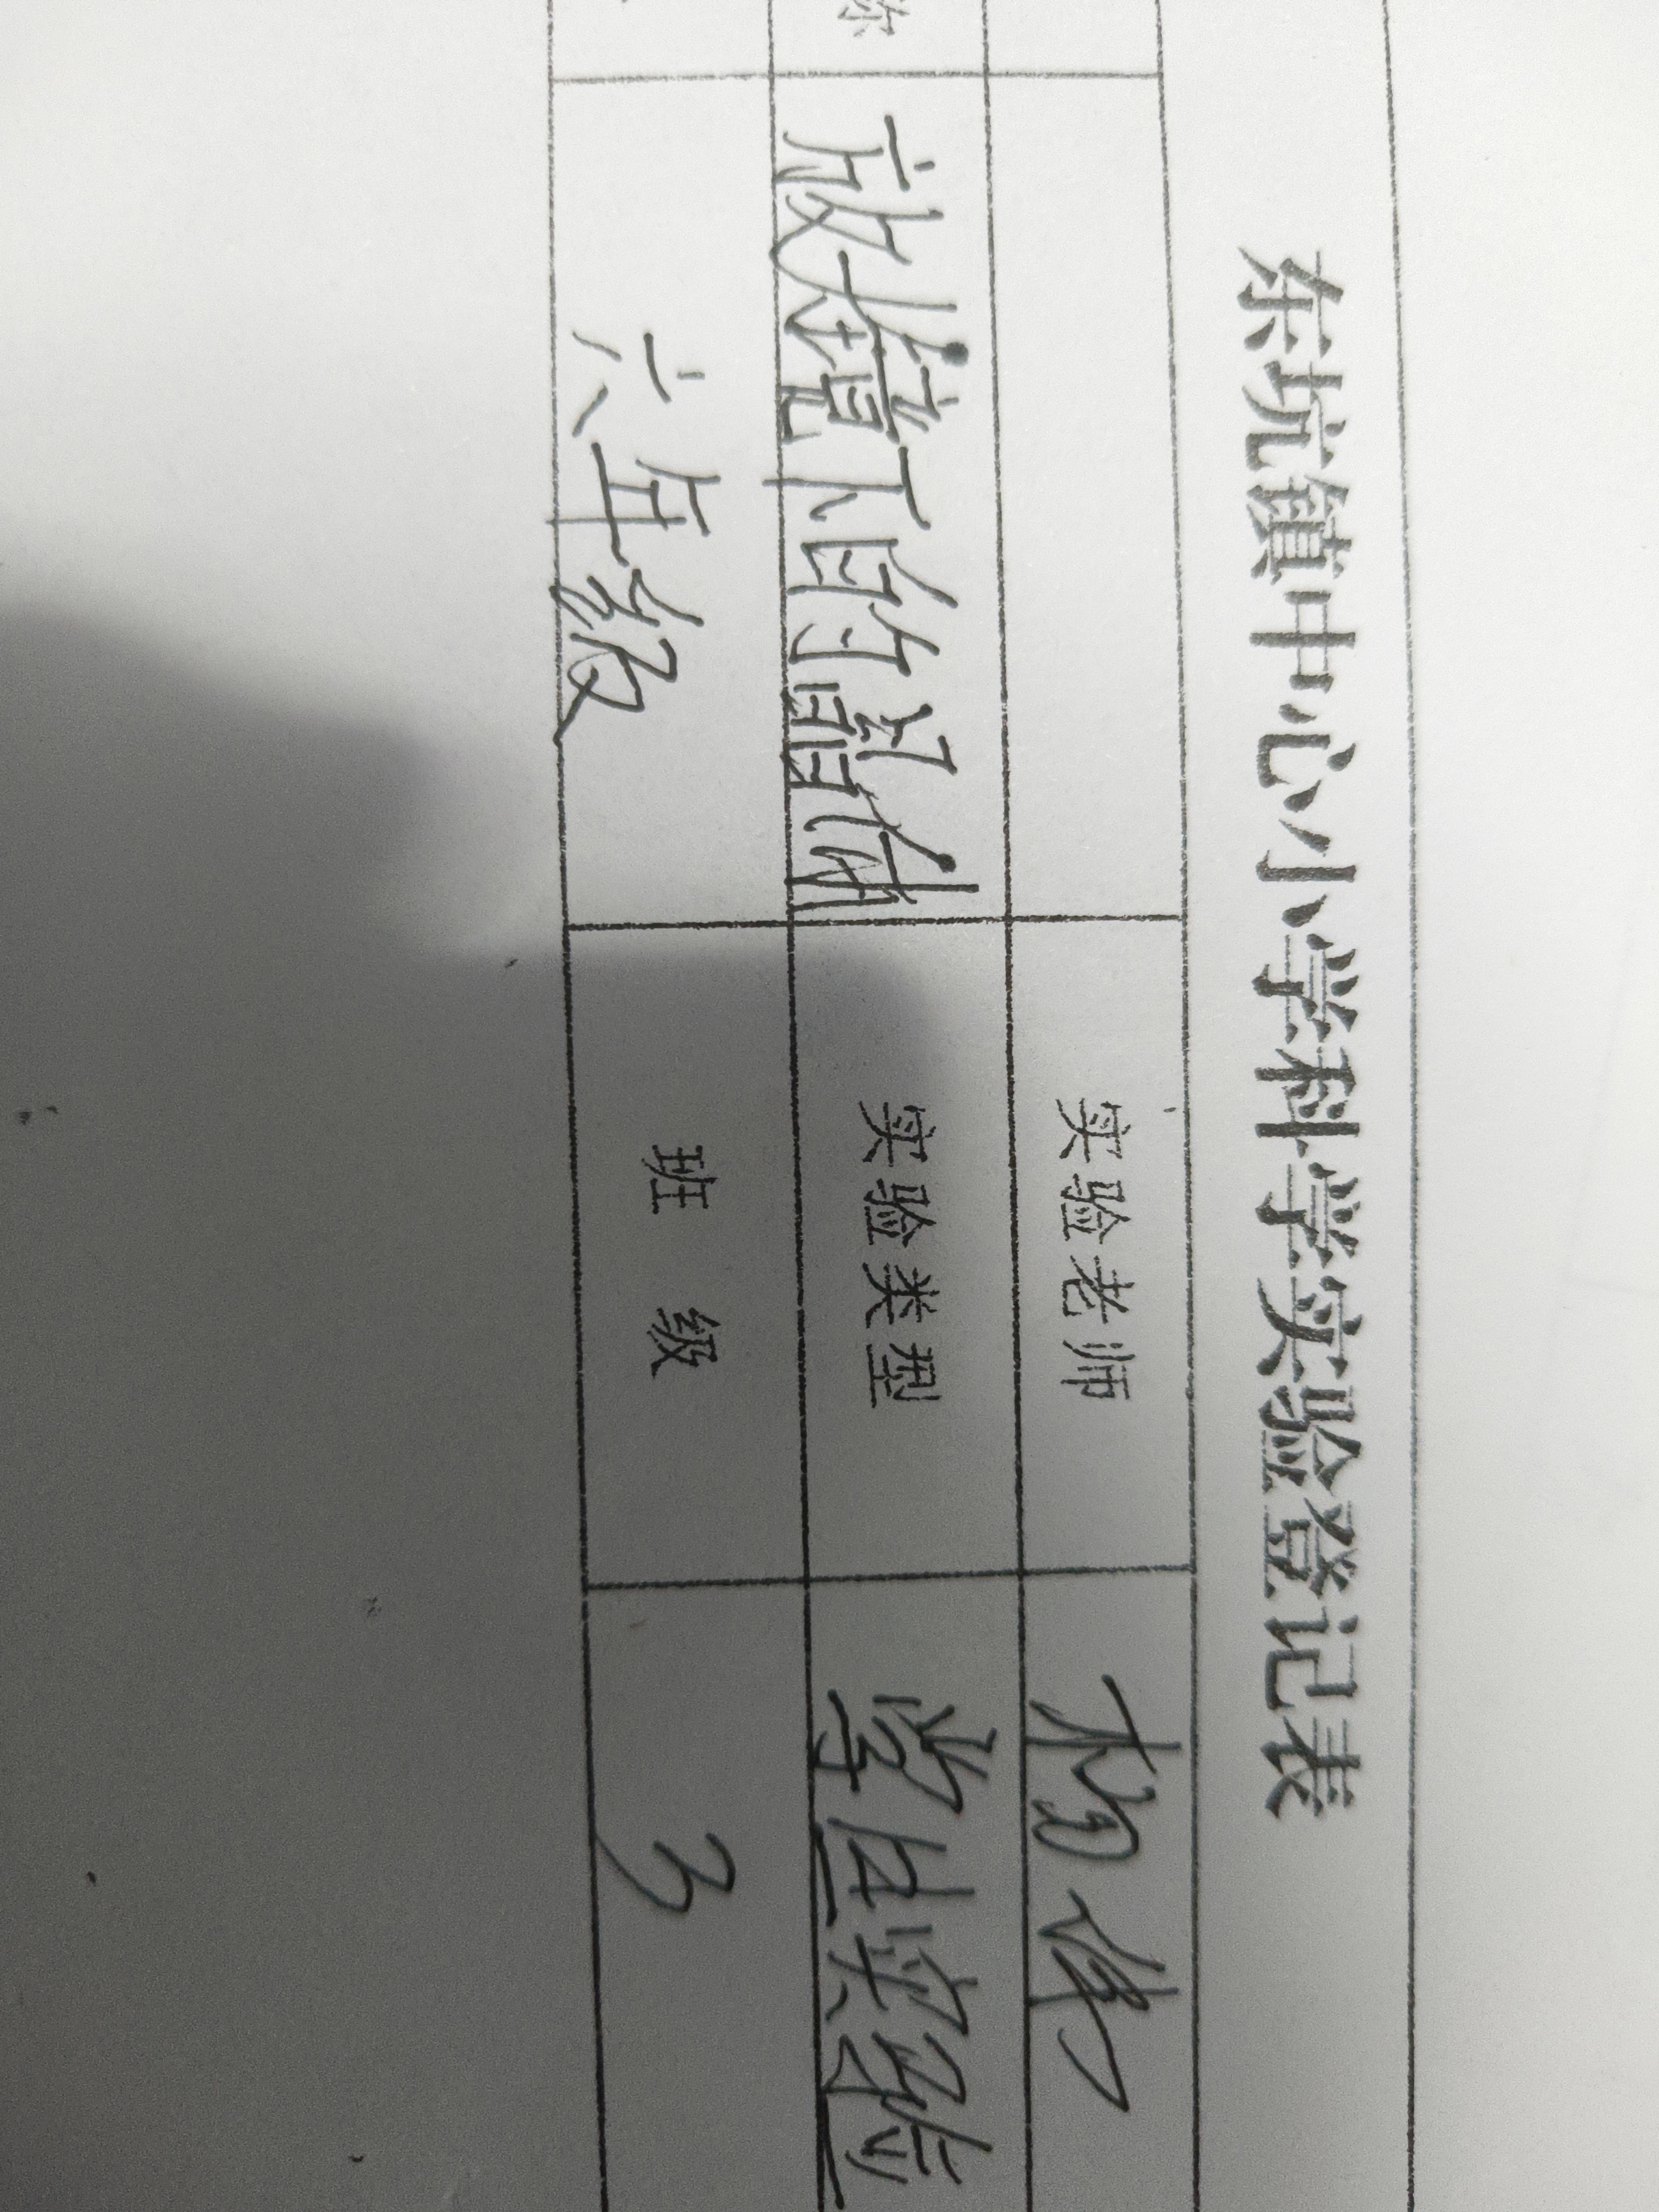 东坑镇中心小学科学实验登记表
实验老师
称 放大镜下的晶体 实验类型 学生实验
六年级 班 级 3